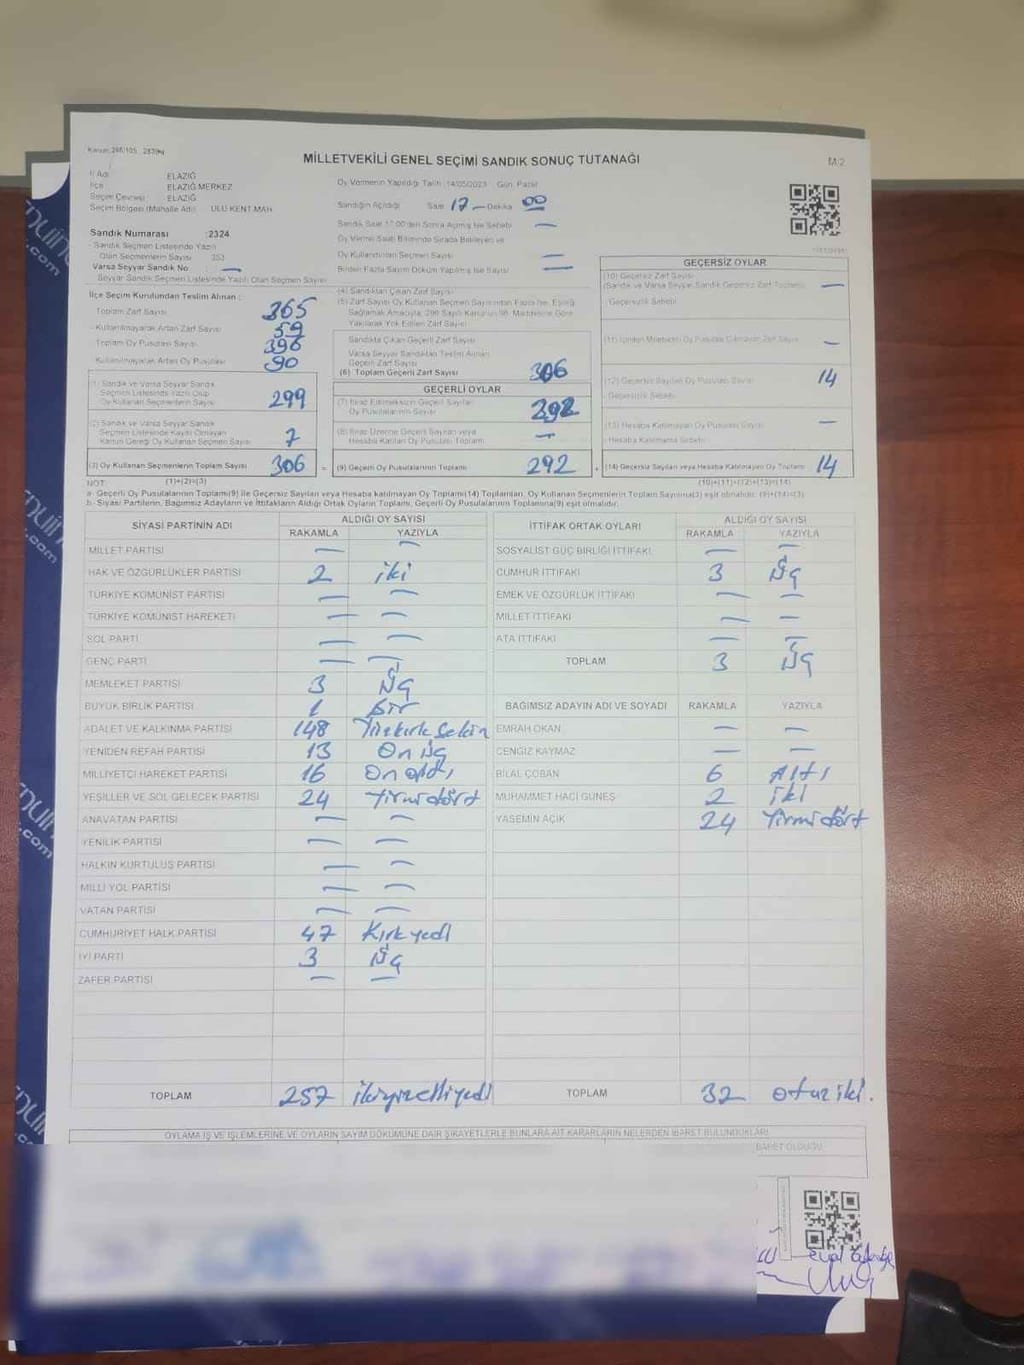 MİLLETVEKİLİ GENEL SEÇİMİ SANDIK SONUÇ TUTANAĞI
İl Adı ELAZIĞ
İlçe ELAZIĞ MERKEZ
Seçim Çevresi ELAZIĞ
Seçim Bölgesi (Mahalle Adı) ULU KENT MAH.
Oy Vermenin Yapıldığı Tarih :14/05/2023 Gün: Pazar
Sandığın Açıldığı Saat 17 Dakika 00
Sandık Saat 17:00'den Sonra Açılmış İse Sebebi —
Oy Verme Saati Bitiminde Sırada Bekleyen ve
Oy Kullandırılan Seçmen Sayısı —
Birden Fazla Sayım Döküm Yapılmış İse Sayısı —
Sandık Numarası :2324
Sandık Seçmen Listesinde Yazılı
Olan Seçmenlerin Sayısı 353
Varsa Seyyar Sandık No —
Seyyar Sandık Seçmen Listesinde Yazılı Olan Seçmen Sayısı
İlçe Seçim Kurulundan Teslim Alınan :
Toplam Zarf Sayısı 365
Kullanılmayarak Artan Zarf Sayısı 59
Toplam Oy Pusulası Sayısı 396
Kullanılmayarak Artan Oy Pusulası 90
(1) Sandık ve Varsa Seyyar Sandık
Seçmen Listesinde Yazılı Olup
Oy Kullanan Seçmenlerin Sayısı 299
(2) Sandık ve Varsa Seyyar Sandık
Seçmen Listesinde Kaydı Olmayan
Kanun Gereği Oy Kullanan Seçmen Sayısı 7
(3) Oy Kullanan Seçmenlerin Toplam Sayısı 306
(1)+(2)=(3)
(4) Sandıktan Çıkan Zarf Sayısı
(5) Zarf Sayısı Oy Kullanan Seçmen Sayısından Fazla İse, Eşitliği
Sağlamak Amacıyla, 298 Sayılı Kanunun 98. Maddesine Göre
Yakılarak Yok Edilen Zarf Sayısı
Sandıkta Çıkan Geçerli Zarf Sayısı
Varsa Seyyar Sandıktan Teslim Alınan
Geçerli Zarf Sayısı
(6) Toplam Geçerli Zarf Sayısı 306
GEÇERLİ OYLAR
(7) İtiraz Edilmeksizin Geçerli Sayılan
Oy Pusulalarının Sayısı 292
(8) İtiraz Üzerine Geçerli Sayılan veya
Hesaba Katılan Oy Pusulası Toplamı —
(9) Geçerli Oy Pusulalarının Toplamı 292
GEÇERSİZ OYLAR
(10) Geçersiz Zarf Sayısı
(Sandık ve Varsa Seyyar Sandık Geçersiz Zarf Toplamı) —
Geçersizlik Sebebi
(12) Geçersiz Sayılan Oy Pusulası Sayısı 14
Geçersizlik Sebebi
(13) Hesaba Katılmayan Oy Pusula Sayısı —
Hesaba Katılmama Sebebi
(14) Geçersiz Sayılan veya Hesaba Katılmayan Oy Toplamı 14
(10)+(11)+(12)+(13)=(14)
NOT:
a- Geçerli Oy Pusulalarının Toplamı(9) ile Geçersiz Sayılan veya Hesaba katılmayan Oy Toplamı(14) Toplamları, Oy Kullanan Seçmenlerin Toplam Sayısına(3) eşit olmalıdır. (9)+(14)=(3)
b- Siyasi Partilerin, Bağımsız Adayların ve İttifakların Aldığı Ortak Oyların Toplamı, Geçerli Oy Pusulalarının Toplamına(9) eşit olmalıdır.
SİYASİ PARTİNİN ADI ALDIĞI OY SAYISI
RAKAMLA YAZIYLA
MİLLET PARTİSİ — —
HAK VE ÖZGÜRLÜKLER PARTİSİ 2 iki
TÜRKİYE KOMÜNİST PARTİSİ — —
TÜRKİYE KOMÜNİST HAREKETİ — —
SOL PARTİ — —
GENÇ PARTİ — —
MEMLEKET PARTİSİ 3 üç
BÜYÜK BİRLİK PARTİSİ 1 Bir
ADALET VE KALKINMA PARTİSİ 148 Yüzkırk Sekiz
YENİDEN REFAH PARTİSİ 13 On üç
MİLLİYETÇİ HAREKET PARTİSİ 16 On altı
YEŞİLLER VE SOL GELECEK PARTİSİ 24 Yirmi dört
ANAVATAN PARTİSİ — —
YENİLİK PARTİSİ — —
HALKIN KURTULUŞ PARTİSİ — —
MİLLİ YOL PARTİSİ — —
VATAN PARTİSİ — —
CUMHURİYET HALK PARTİSİ 47 Kırk yedi
İYİ PARTİ 3 üç
ZAFER PARTİSİ — —
TOPLAM 257 ikiyüzelliyedi
İTTİFAK ORTAK OYLARI ALDIĞI OY SAYISI
RAKAMLA YAZIYLA
SOSYALİST GÜÇ BİRLİĞİ İTTİFAKI — —
CUMHUR İTTİFAKI 3 üç
EMEK VE ÖZGÜRLÜK İTTİFAKI — —
MİLLET İTTİFAKI — —
ATA İTTİFAKI — —
TOPLAM 3 üç
BAĞIMSIZ ADAYIN ADI VE SOYADI RAKAMLA YAZIYLA
EMRAH OKAN — —
CENGİZ KAYMAZ — —
BİLAL ÇOBAN 6 Altı
MUHAMMET HACI GÜNEŞ 2 iki
YASEMİN AÇIK 24 Yirmi dört
TOPLAM 32 otuz iki.
OYLAMA İŞ VE İŞLEMLERİNE VE OYLARIN SAYIM DÖKÜMÜNE DAİR ŞİKAYETLERLE BUNLARA AİT KARARLARIN NELERDEN İBARET BULUNDUKLARI